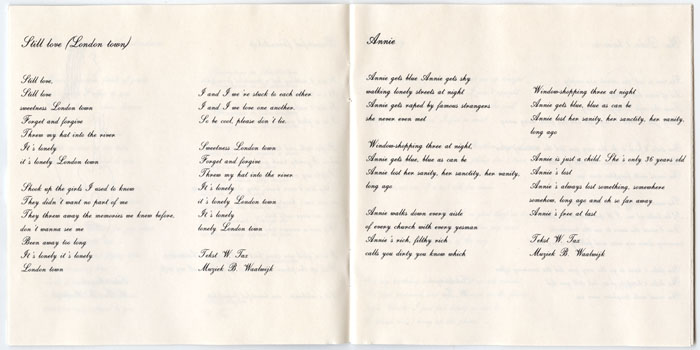 Still love (London town)
Still love,
Still love
sweetness London town
Forget and forgive
Threw my hat into the river
It's lonely
it's lonely London town
Shook up the girls I used to know
They didn't want no part of me
They threw away the memories we knew before,
don't wanna see me
Been away too long
It's lonely it's lonely
London town
I and I we're stuck to each other
I and I we love one another.
So be cool, please don't lie.
Sweetness London town
Forget and forgive
Threw my hat into the river
It's lonely
it's lonely London town
It's lonely
lonely London town
Tekst W. Tax
Muziek B. Waalwijk
Annie
Annie gets blue Annie gets shy
walking lonely streets at night
Annie gets raped by famous strangers
she never even met
Window-shopping three at night,
Annie gets blue, blue as can be
Annie lost her sanity, her sanctity, her vanity,
long ago
Annie walks down every aisle
of every church with every yesman
Annie's rich, filthy rich
calls you dirty you know which
Window-shopping three at night
Annie gets blue, blue as can be
Annie lost her sanity, her sanctity, her vanity,
long ago
Annie is just a child. She's only 36 years old
Annie's lost
Annie's always lost something, somewhere
somehow, long ago and oh so far away
Annie's free at last
Tekst W. Tax
Muziek B. Waalwijk